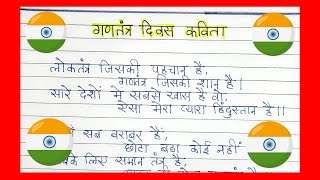 गणतंत्र दिवस कविता
लोकतंत्र जिसकी पहचान है,
गणतंत्र जिसकी शान है।
सारे देशों में सबसे खास है वो,
ऐसा मेरा प्यारा हिंदुस्तान है।।
सब बराबर हैं,
छोटा बड़ा कोई नहीं
लिए समान तंत्र है,